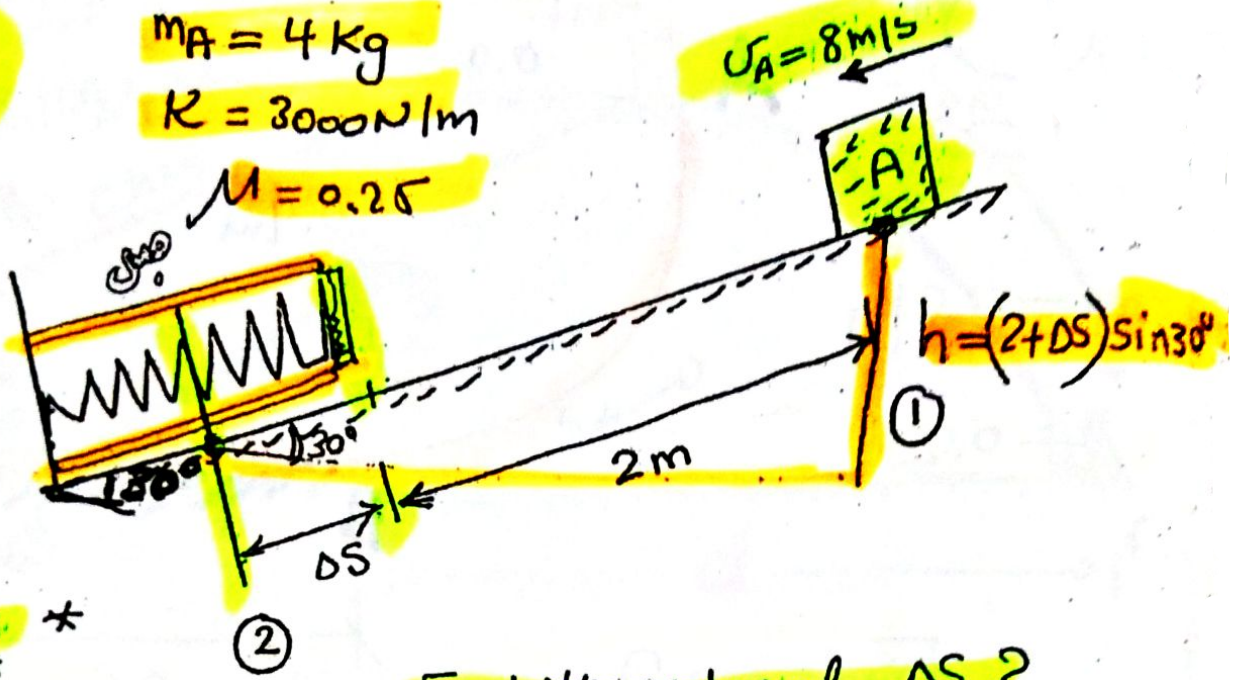 mA = 4 Kg
K = 3000N/m
M = 0.25
υA = 8m/s
A
h=(2+ΔS)Sin30°
①
30°
2m
ΔS
*
②
ΔS ?